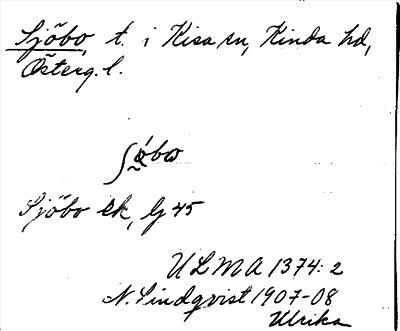 Sjöbo, t. i Kisa sn, Kinda hd,
Österg. l.
Sjöbo ek, lj 45
ULMA 1374: 2
N. Lindqvist 1907-08
Ulrika